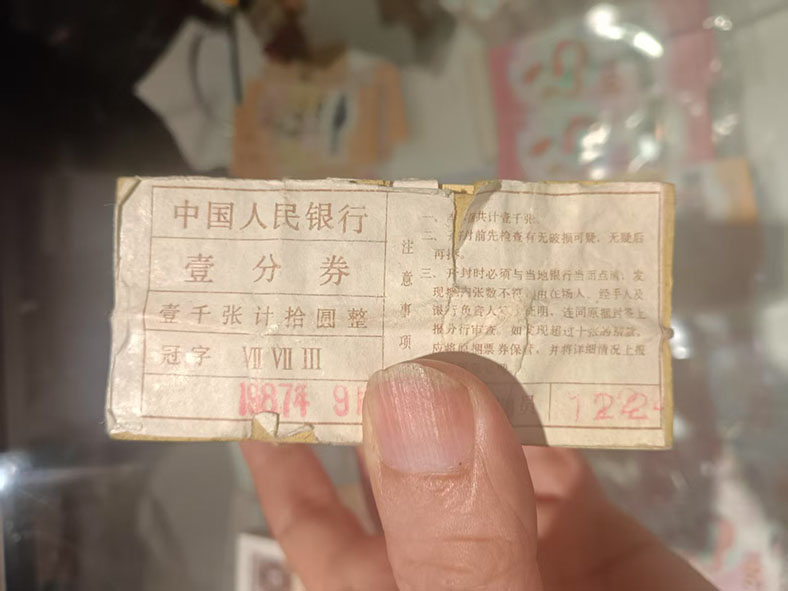 中国人民银行
壹分券
壹千张计拾圆整
冠字 Ⅶ Ⅶ Ⅲ
1987年 9
注意事项
一、共计壹千张。
二、封前先检查有无破损可疑，无疑后
再
三、开封时必须与当地银行当面点清，发
现 内张数不符 由在场人、经手人及
银行负责人 明，连同原捆封签上
报分行审查。如发现超过十张的
应将原捆票券保 并将详细情况上报
员
1224